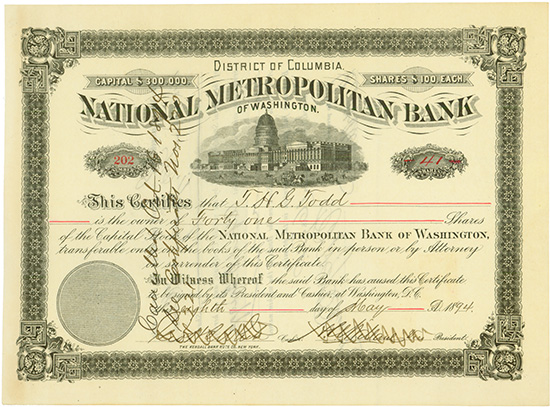 DISTRICT OF COLUMBIA.
CAPITAL $300.000.
SHARES $100 EACH.
NATIONAL METROPOLITAN BANK
OF WASHINGTON.
202
41
This Certifies that T. H. G. Todd
is the owner of Forty one Shares
of the Capital Stock of the NATIONAL METROPOLITAN BANK OF WASHINGTON,
transferable only on the books of the said Bank in person or by Attorney
on surrender of this Certificate.
In Witness Whereof the said Bank has caused this Certificate
to be signed by its President and Cashier, at Washington, D.C.
this eighth day of May A.D. 1894.
Cashier
President.
THE KENDALL BANK NOTE CO. NEW YORK.